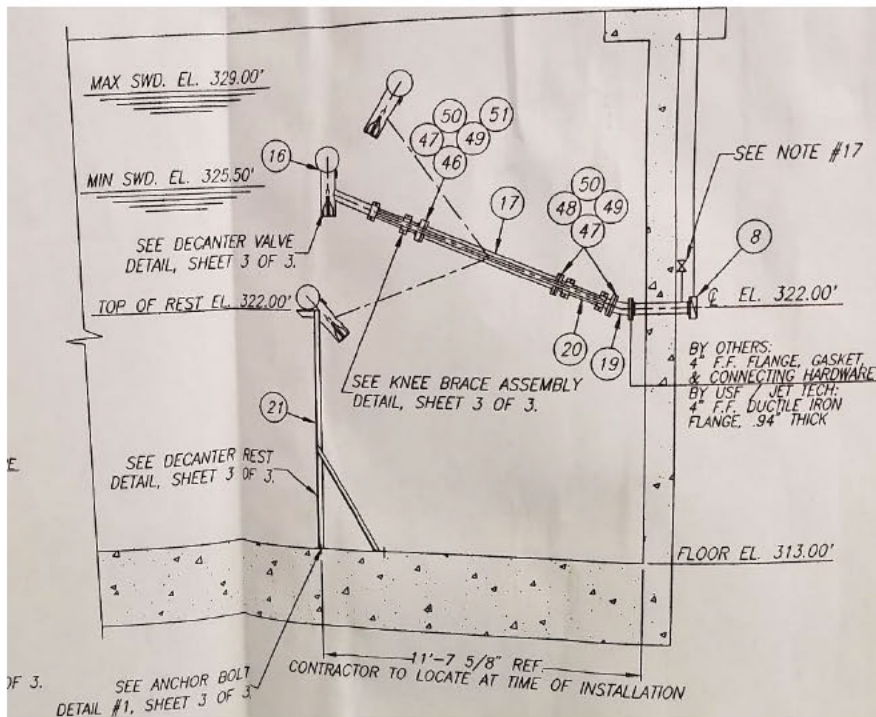 MAX SWD. EL. 329.00'
50
51
47
49
46
16
SEE NOTE #17
MIN SWD. EL. 325.50'
17
50
48
49
47
8
SEE DECANTER VALVE
DETAIL, SHEET 3 OF 3.
TOP OF REST EL. 322.00'
℄ EL. 322.00'
20
19
BY OTHERS:
4" F.F. FLANGE, GASKET,
& CONNECTING HARDWARE
BY USF / JET TECH:
4" F.F. DUCTILE IRON
FLANGE, .94" THICK
SEE KNEE BRACE ASSEMBLY
DETAIL, SHEET 3 OF 3.
21
SEE DECANTER REST
DETAIL, SHEET 3 OF 3.
FLOOR EL. 313.00'
11'-7 5/8" REF.
CONTRACTOR TO LOCATE AT TIME OF INSTALLATION
OF 3.
SEE ANCHOR BOLT
DETAIL #1, SHEET 3 OF 3.